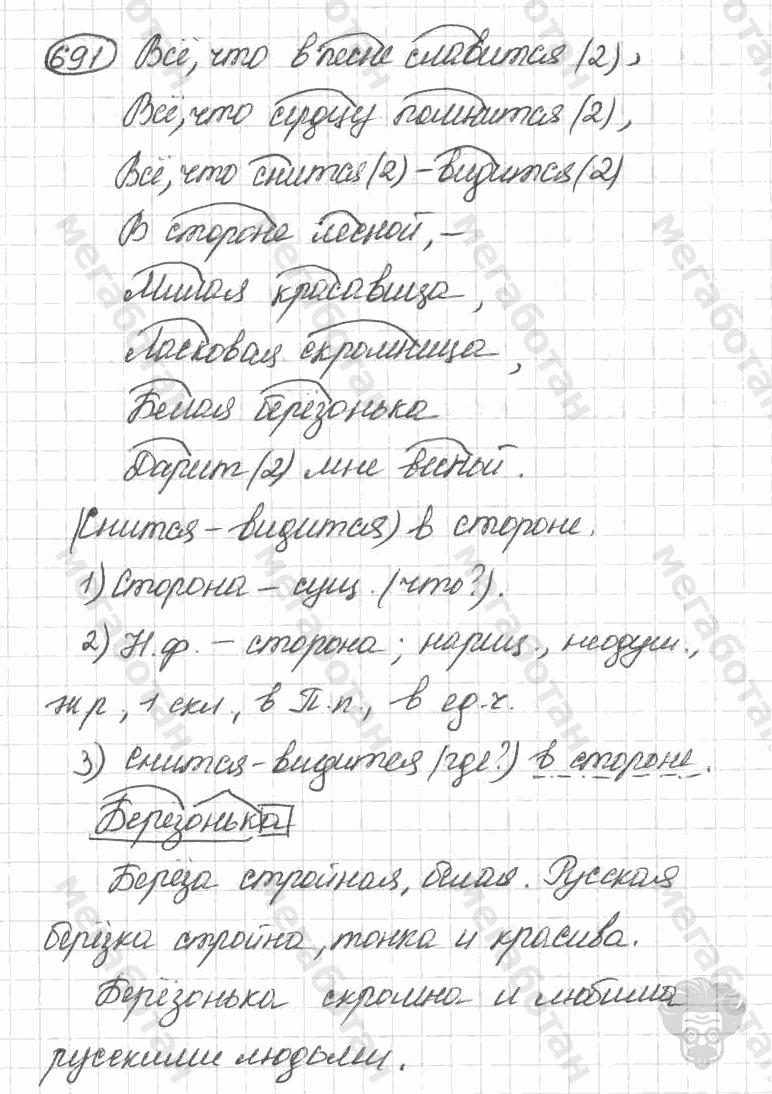 691 Всё, что в песне славится (2),
Всё, что сердцу помнится (2),
Всё, что снится (2) – видится (2)
В стороне лесной, –
Милая красавица,
Ласковая скромница,
Белая берёзонька
Дарит (2) мне весной.
(Снится – видится) в стороне.
1) Сторона – сущ. (что?).
2) Н.ф. – сторона; нариц., неодуш.,
ж.р., 1 скл., в П.п., в ед.ч.
3) Снится – видится (где?) в стороне.
Берёзонька
Берёза стройная, белая. Русская
берёзка стройна, тонка и красива.
Берёзонька скромна и любима
русскими людьми.
мегаботан